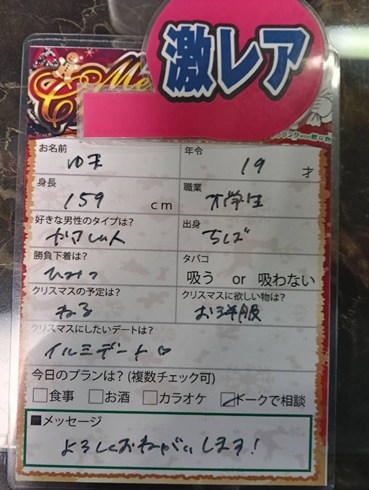 激レア
Me
お名前 ゆま 年令 19 才
身長 159 cm 職業 大学生
好きな男性のタイプは? やさしい人 出身 ちば
勝負下着は? ひみつ タバコ 吸う or 吸わない
クリスマスの予定は? ねる クリスマスに欲しい物は? お洋服
クリスマスにしたいデートは?
イルミデート♡
今日のプランは?(複数チェック可)
□食事 □お酒 □カラオケ ☑トークで相談
■メッセージ
よろしくおねがいします!